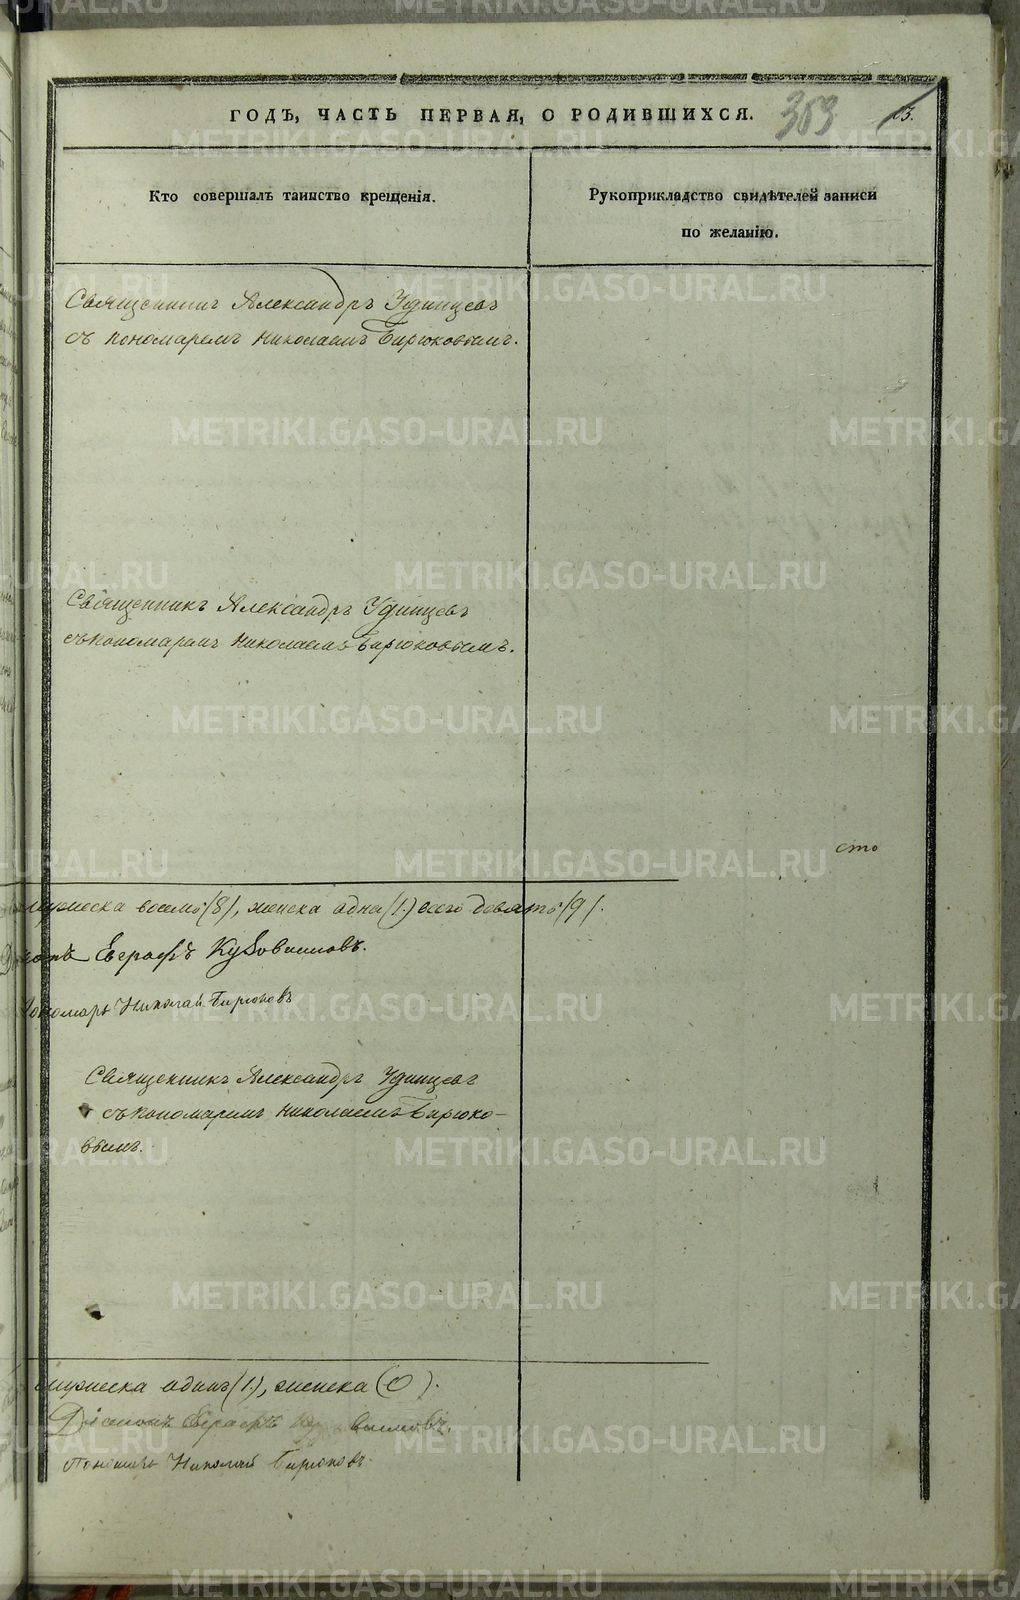 ГОДЪ, ЧАСТЬ ПЕРВАЯ, О РОДИВШИХСЯ.
303
13.
Кто совершалъ таинство крещенія.
Рукоприкладство свидѣтелей записи
по желанію.
Священникъ Александръ Удинцевъ
съ пономаремъ Николаемъ Бирюковымъ.
Священникъ Александръ Удинцевъ
съ пономаремъ Николаемъ Бирюковымъ.
сто
мужеска восмь (8), женска одна (1.) всего девять (9).
Ерастъ
Пономарь Николай Бирюковъ
Священникъ Александръ Удинцевъ
съ пономаремъ Николаемъ Бирюко-
вымъ.
мужеска одинъ (1.), женска (0).
Діаконъ
Пономарь Николай Бирюковъ.
METRIKI.GASO-URAL.RU